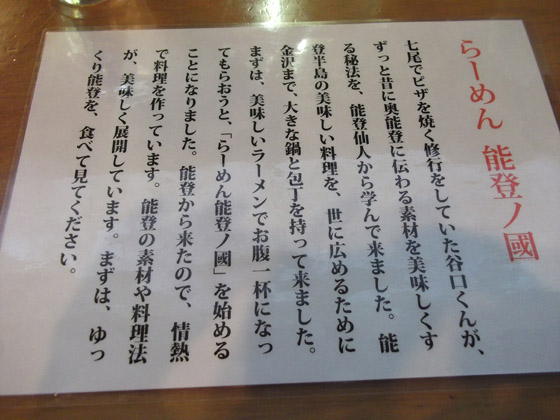 らーめん 能登ノ國
七尾でピザを焼く修行をしていた谷口くんが、
ずっと昔に奥能登に伝わる素材を美味しくす
る秘法を、能登仙人から学んで来ました。能
登半島の美味しい料理を、世に広めるために
金沢まで、大きな鍋と包丁を持って来ました。
まずは、美味しいラーメンでお腹一杯になっ
てもらおうと、「らーめん能登ノ國」を始める
ことになりました。能登から来たので、情熱
で料理を作っています。能登の素材や料理法
が、美味しく展開しています。まずは、ゆっ
くり能登を、食べて見てください。